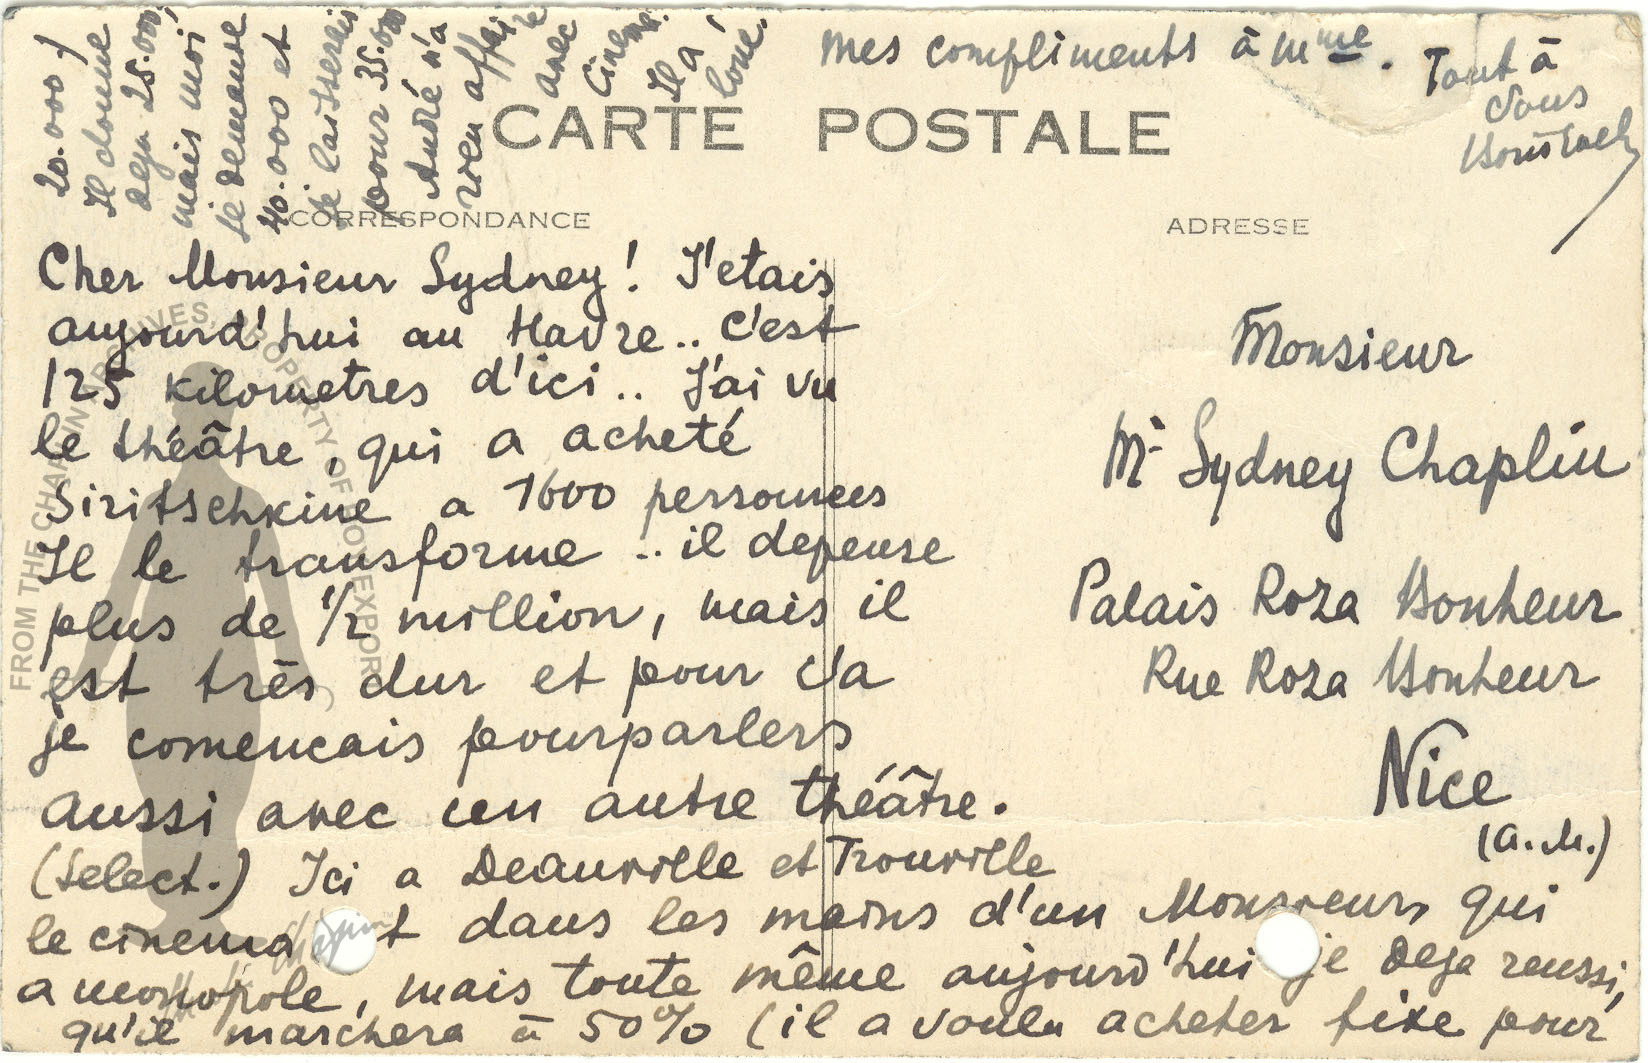 CARTE POSTALE
CORRESPONDANCE
ADRESSE
Cher Monsieur Sydney! J'etais
aujourd'hui au Havre.. C'est
125 kilometres d'ici.. J'ai vu
le théâtre, qui a acheté
Siritschkine a 1600 personnes
Il le transforme .. il depense
plus de 1/2 million, mais il
est très dur et pour ça
je comencais pourparlers
aussi avec un autre théâtre.
(Select.) Ici a Deauville et Trouville
le cinema est dans les mains d'un Monsieur, qui
a monopole, mais toute même aujourd'hui je Deja reussi,
qu'il marchera à 50% (il a voulu acheter fixe pour
20.000)
Il donne
deja 25.000,
mais moi
je demande
40.000 et
je laisserais
pour 35.000
André n'a
rien affaire
avec
Cinema.
Il a
loué.
mes compliments à Mme.
Tout à
Vous
Monsieur
Mr Sydney Chaplin
Palais Roza Bonheur
Rue Roza Bonheur
Nice
(A.M.)
FROM THE CHAPLIN ARCHIVES. PROPERTY OF ROY EXPORT